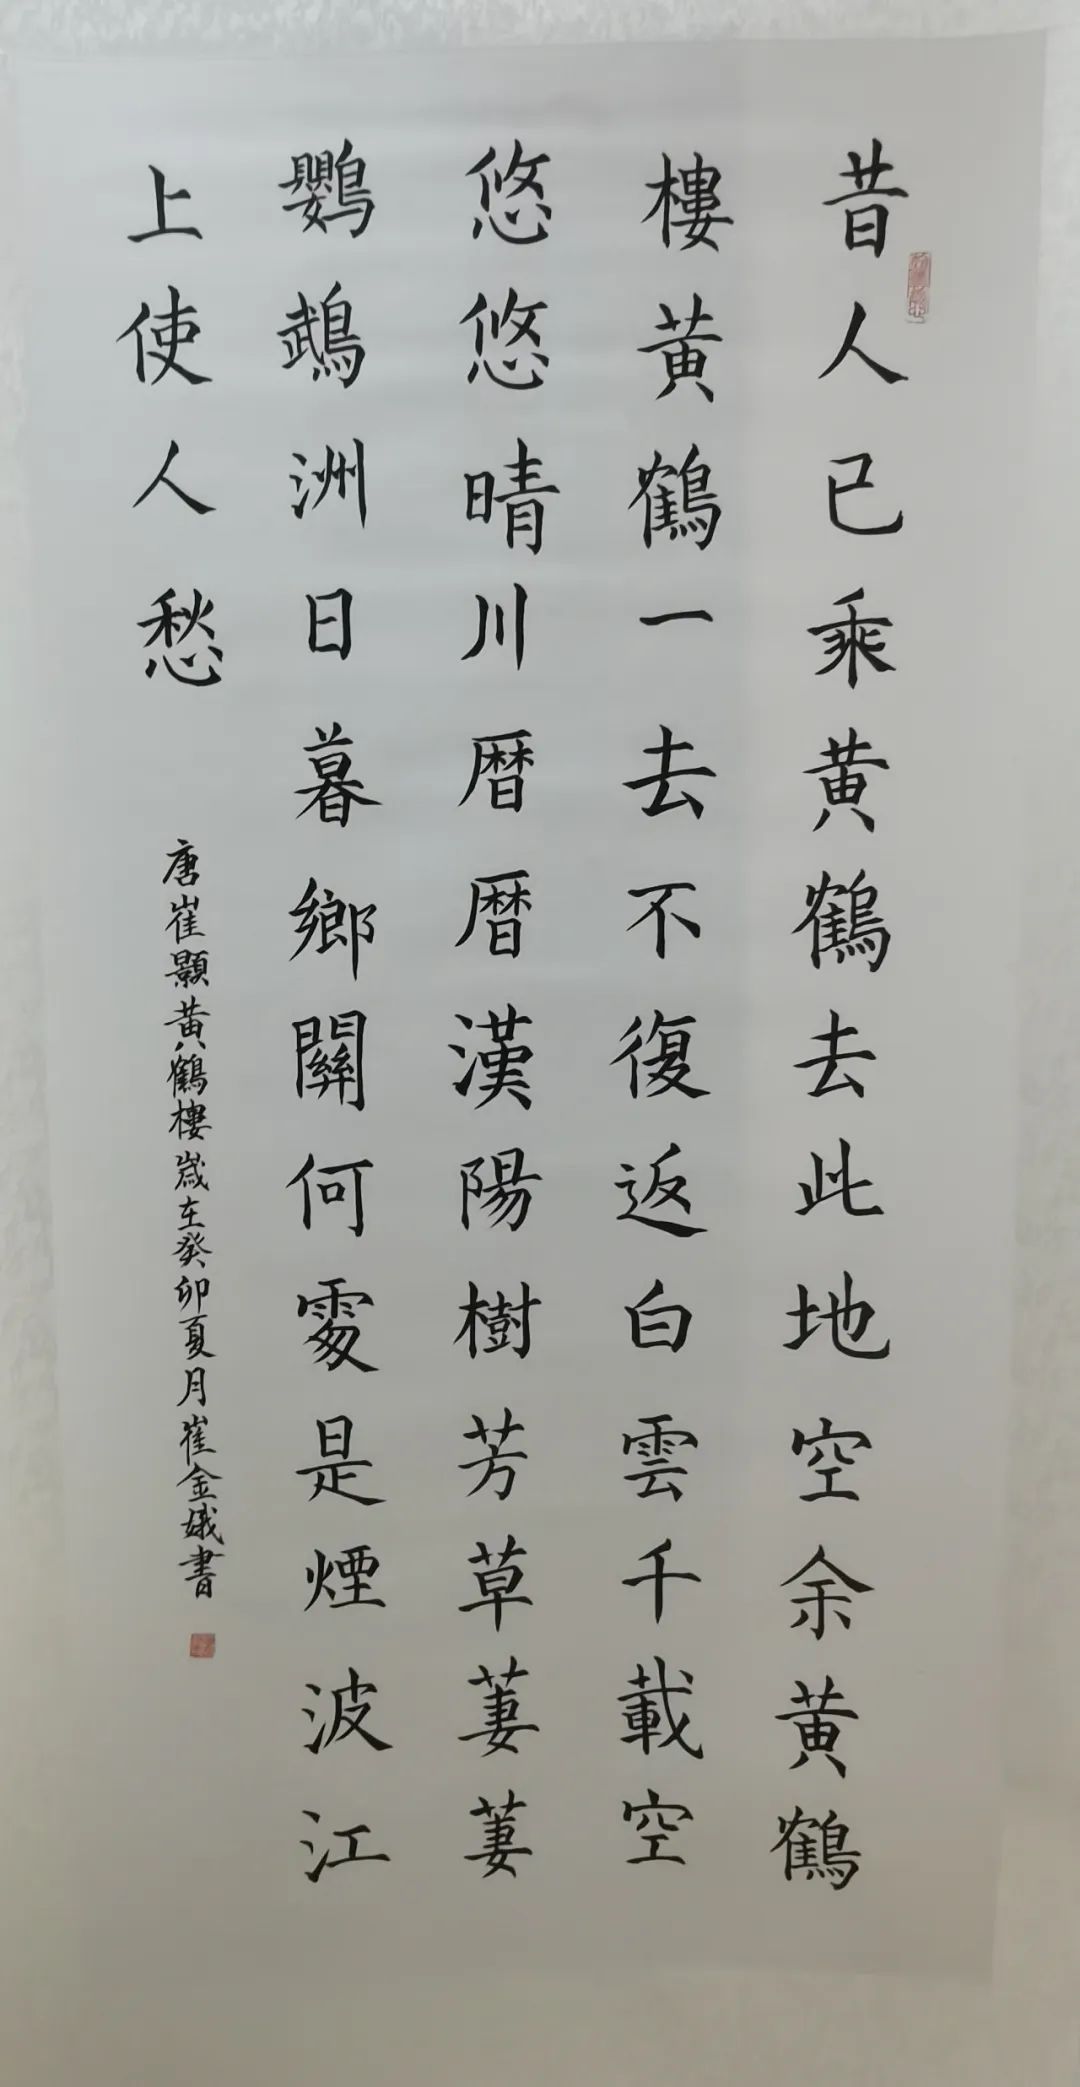 昔人已乘黄鶴去此地空余黄鶴
樓黄鶴一去不復返白雲千載空
悠悠晴川曆曆漢陽樹芳草萋萋
鸚鵡洲日暮鄉關何處是煙波江
上使人愁
唐崔顥黄鶴樓歲在癸卯夏月崔金娥書